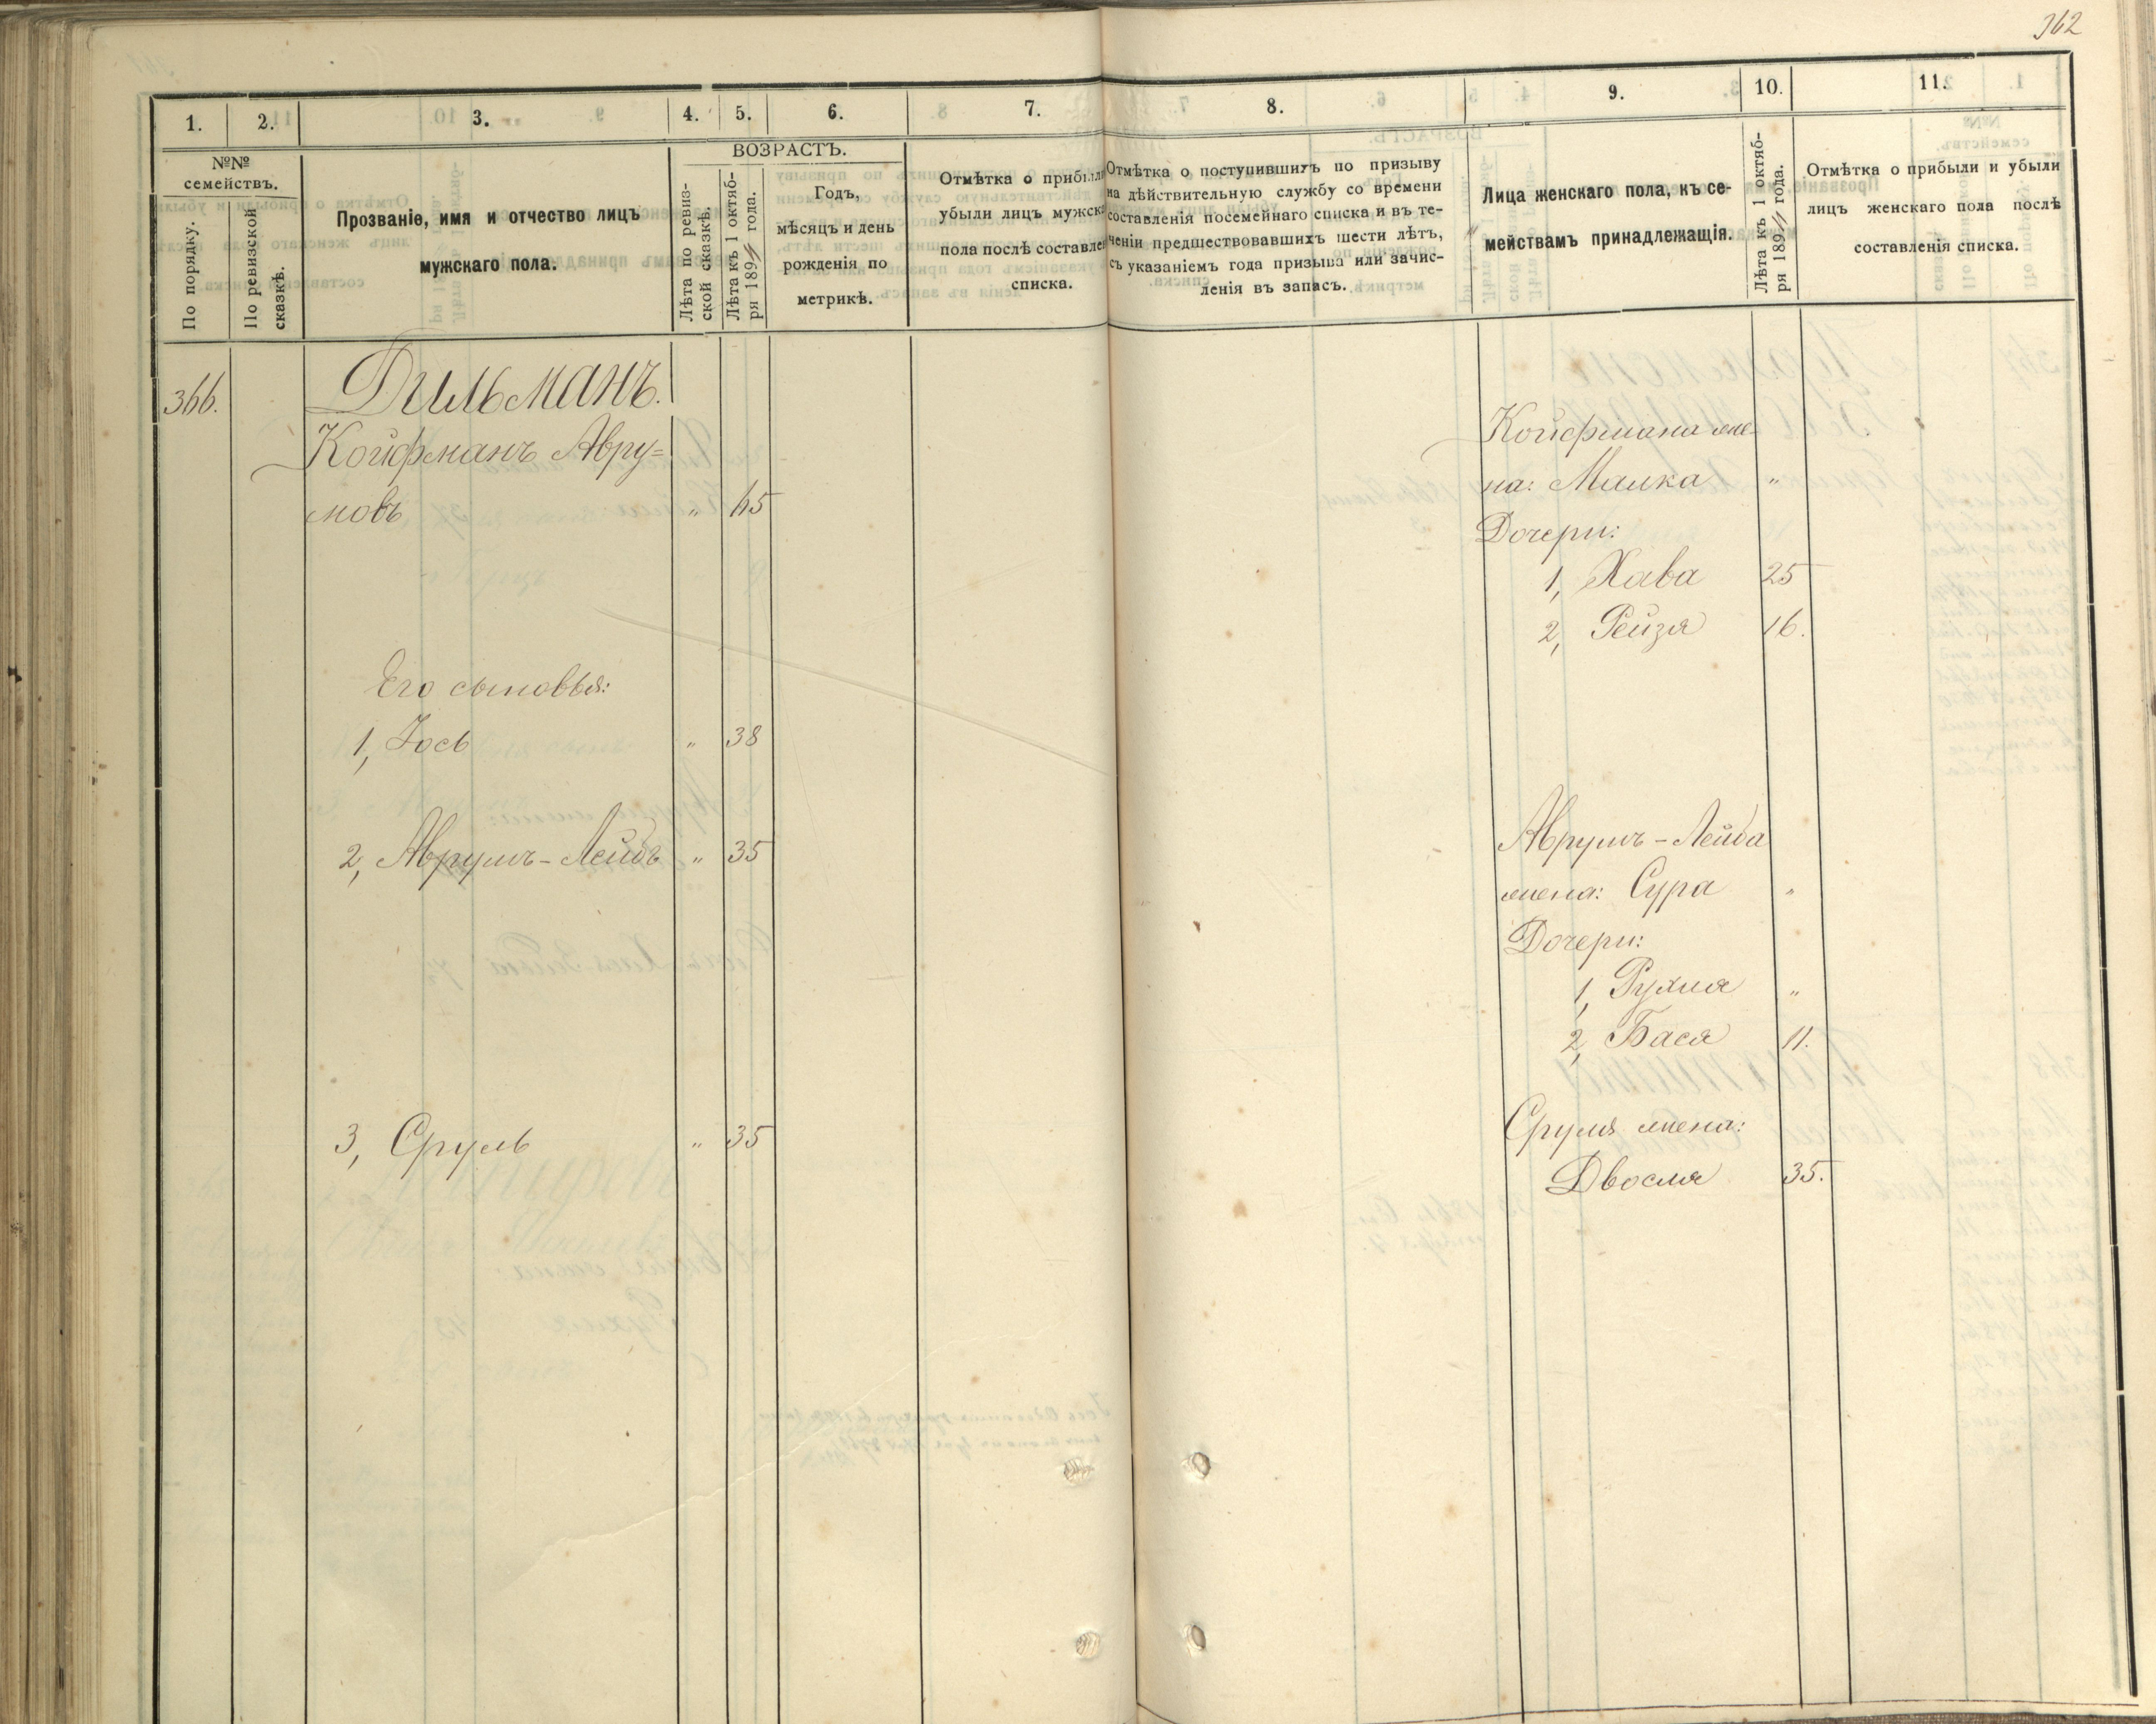 362
1.
2.
3.
4.
5.
6.
7.
8.
9.
10.
11.
№№
семействъ.
По порядку.
По ревизской
сказкѣ.
Прозваніе, имя и отчество лицъ
мужскаго пола.
ВОЗРАСТЪ.
Лѣта по ревиз-
ской сказкѣ.
Лѣта къ 1 октяб-
ря 189 года.
Годъ,
мѣсяцъ и день
рожденія по
метрикѣ.
Отмѣтка о прибыли
убыли лицъ мужска
пола послѣ составлен
списка.
Отмѣтка о поступившихъ по призыву
на дѣйствительную службу со времени
составленія посемейнаго списка и въ те-
ченіи предшествовавшихъ шести лѣтъ,
съ указаніемъ года призыва или зачис-
ленія въ запасъ.
Лица женскаго пола, къ се-
мействамъ принадлежащія.
Лѣта къ 1 октяб-
ря 189 года.
Отмѣтка о прибыли и убыли
лицъ женскаго пола послѣ
составленія списка.
366.
Дильманъ.
Койфманъ Авру=
мовъ " 65
Его сыновья:
1, Іось " 38
2, Аврумъ-Лейбъ " 35
3, Сруль " 35
Койфмана же-
на: Малка "
Дочери:
1, Хава 25
2, Рейзя 16.
Аврумъ-Лейба
жена: Сура "
Дочери:
1, Рухля "
2, Бася 11.
Сруля жена:
Двося 35.